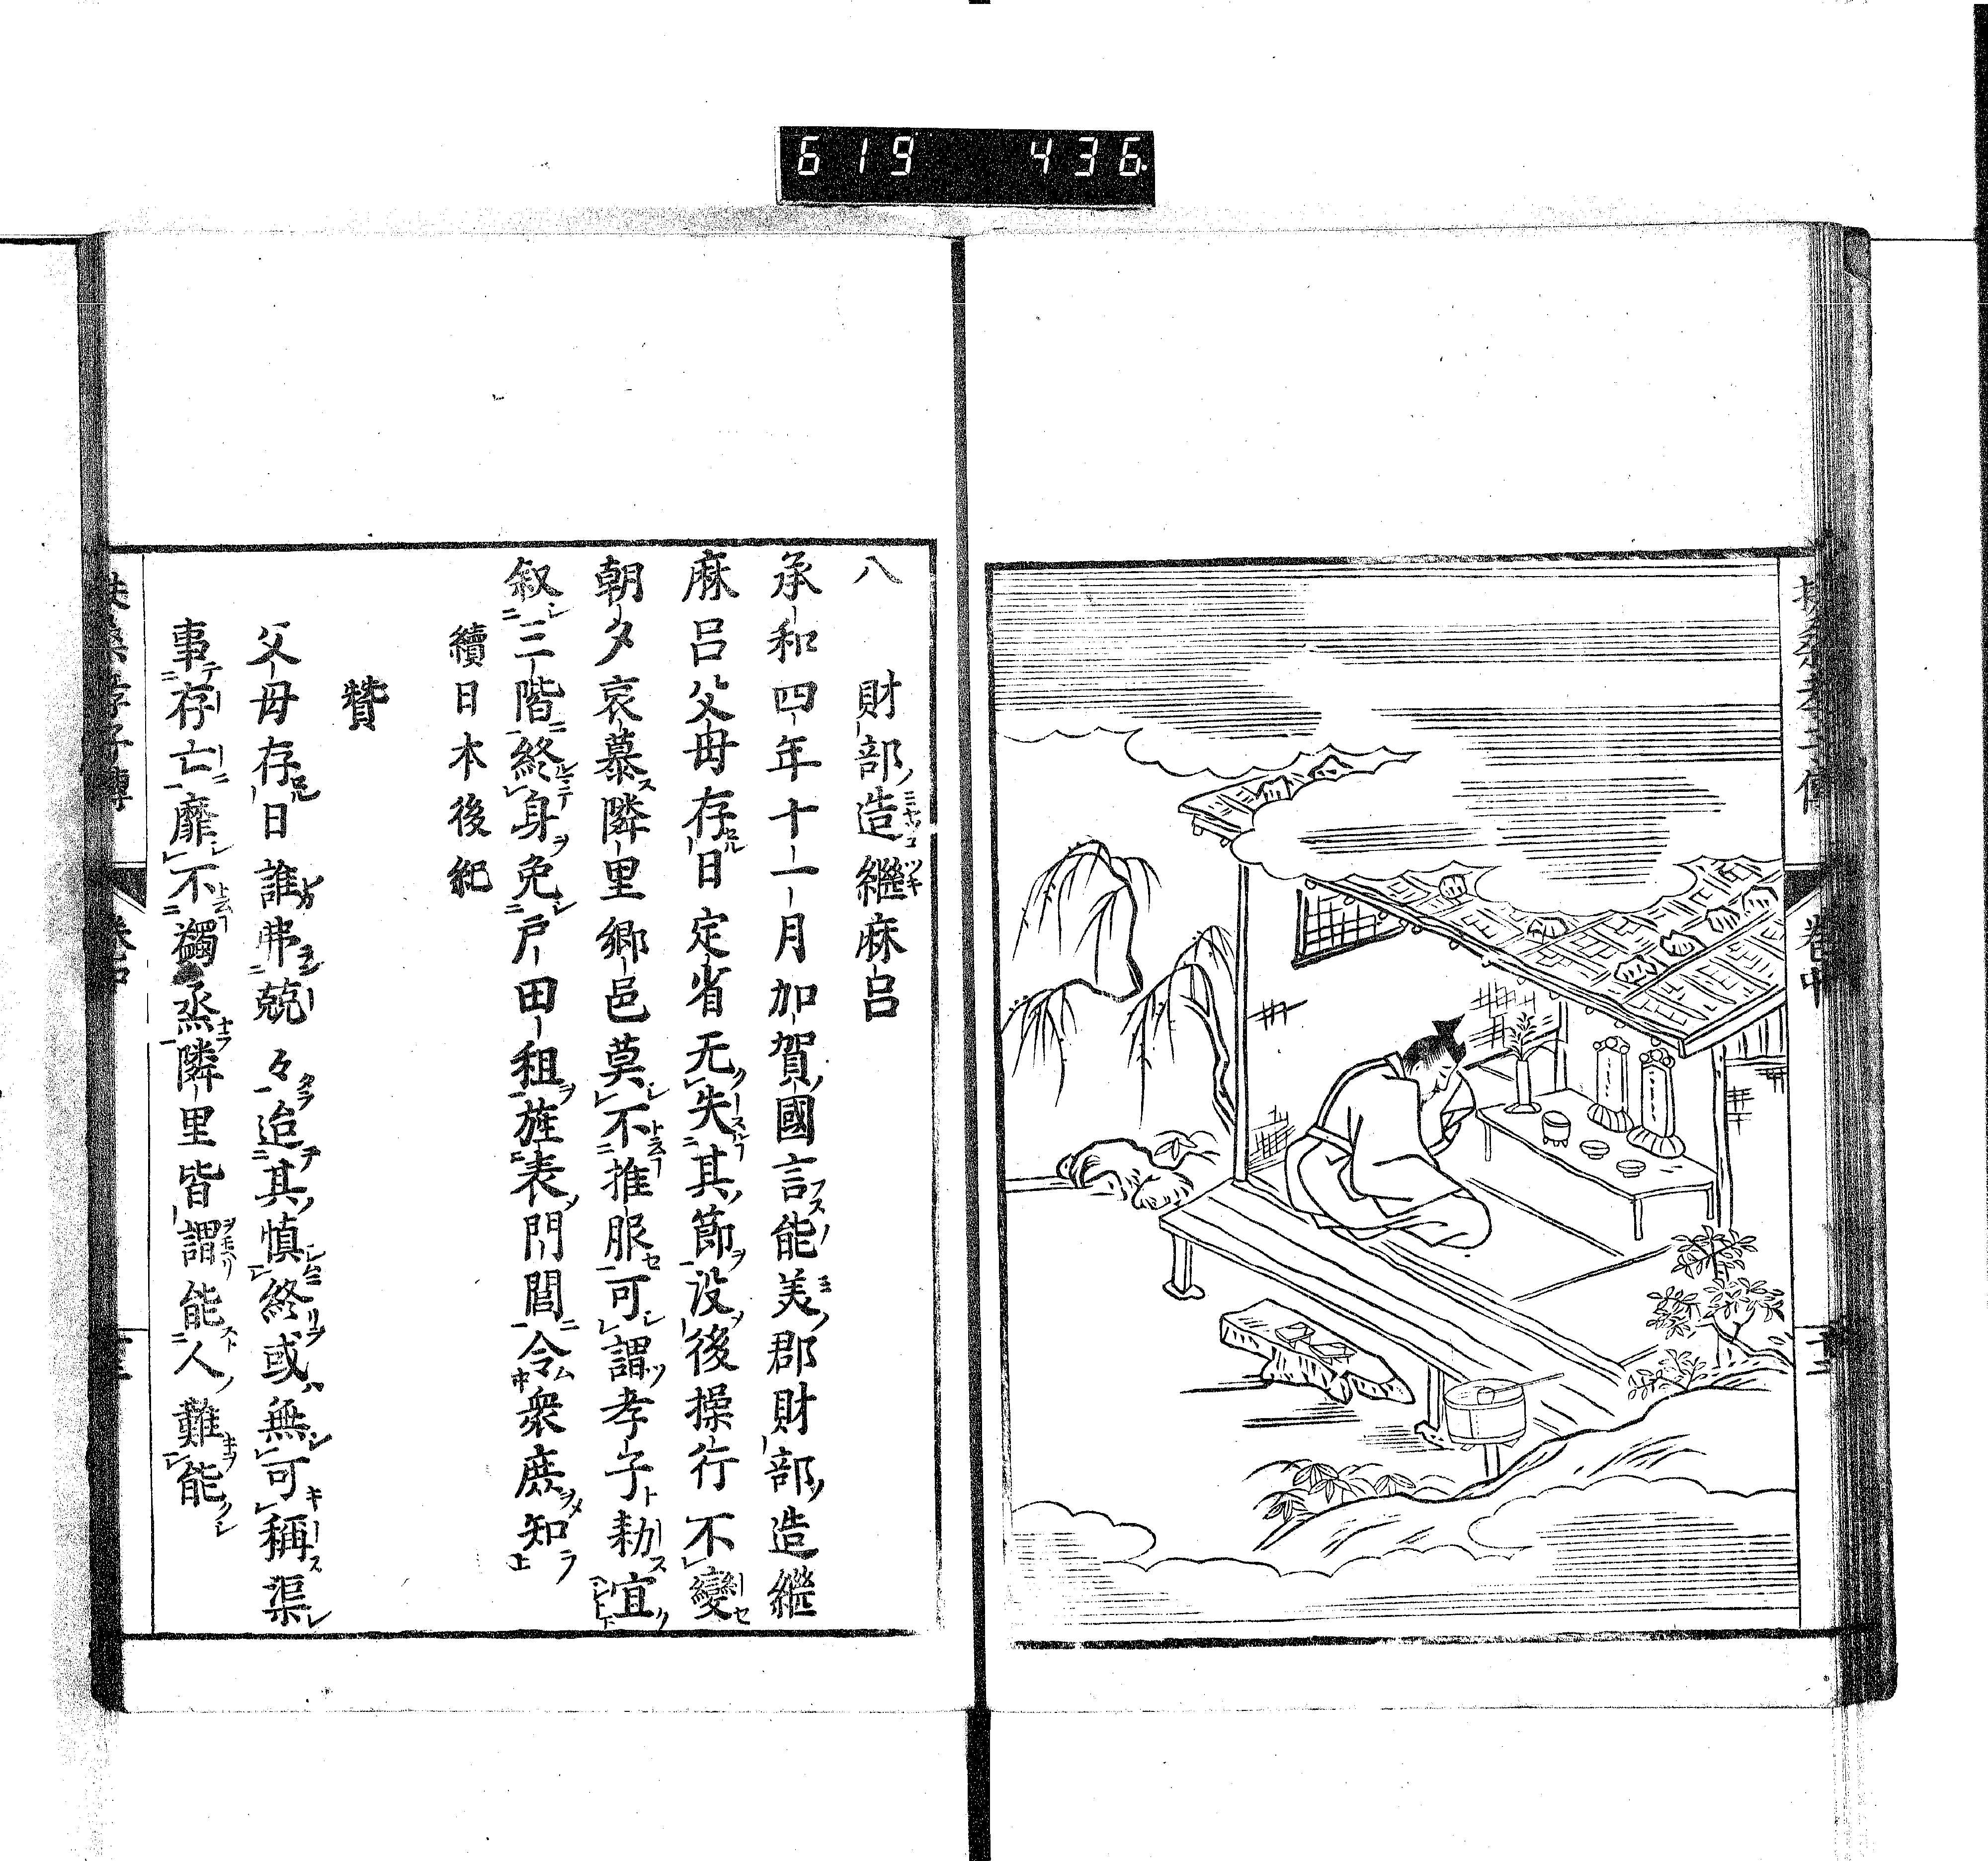 619 436
八 財部造繼麻呂
承和四年十一月加賀國言能美郡財部造繼
麻呂父母存日定省无失其節没後操行不變
朝夕哀慕隣里鄉邑莫不推服可謂孝子勑宜
叙三階終身免戸田租旌表門閭令衆庶知
續日本後紀
贊
父母存日誰弗兢々迨其慎終或無可稱渠
事存亡靡不蠲烝隣里皆謂能人難能